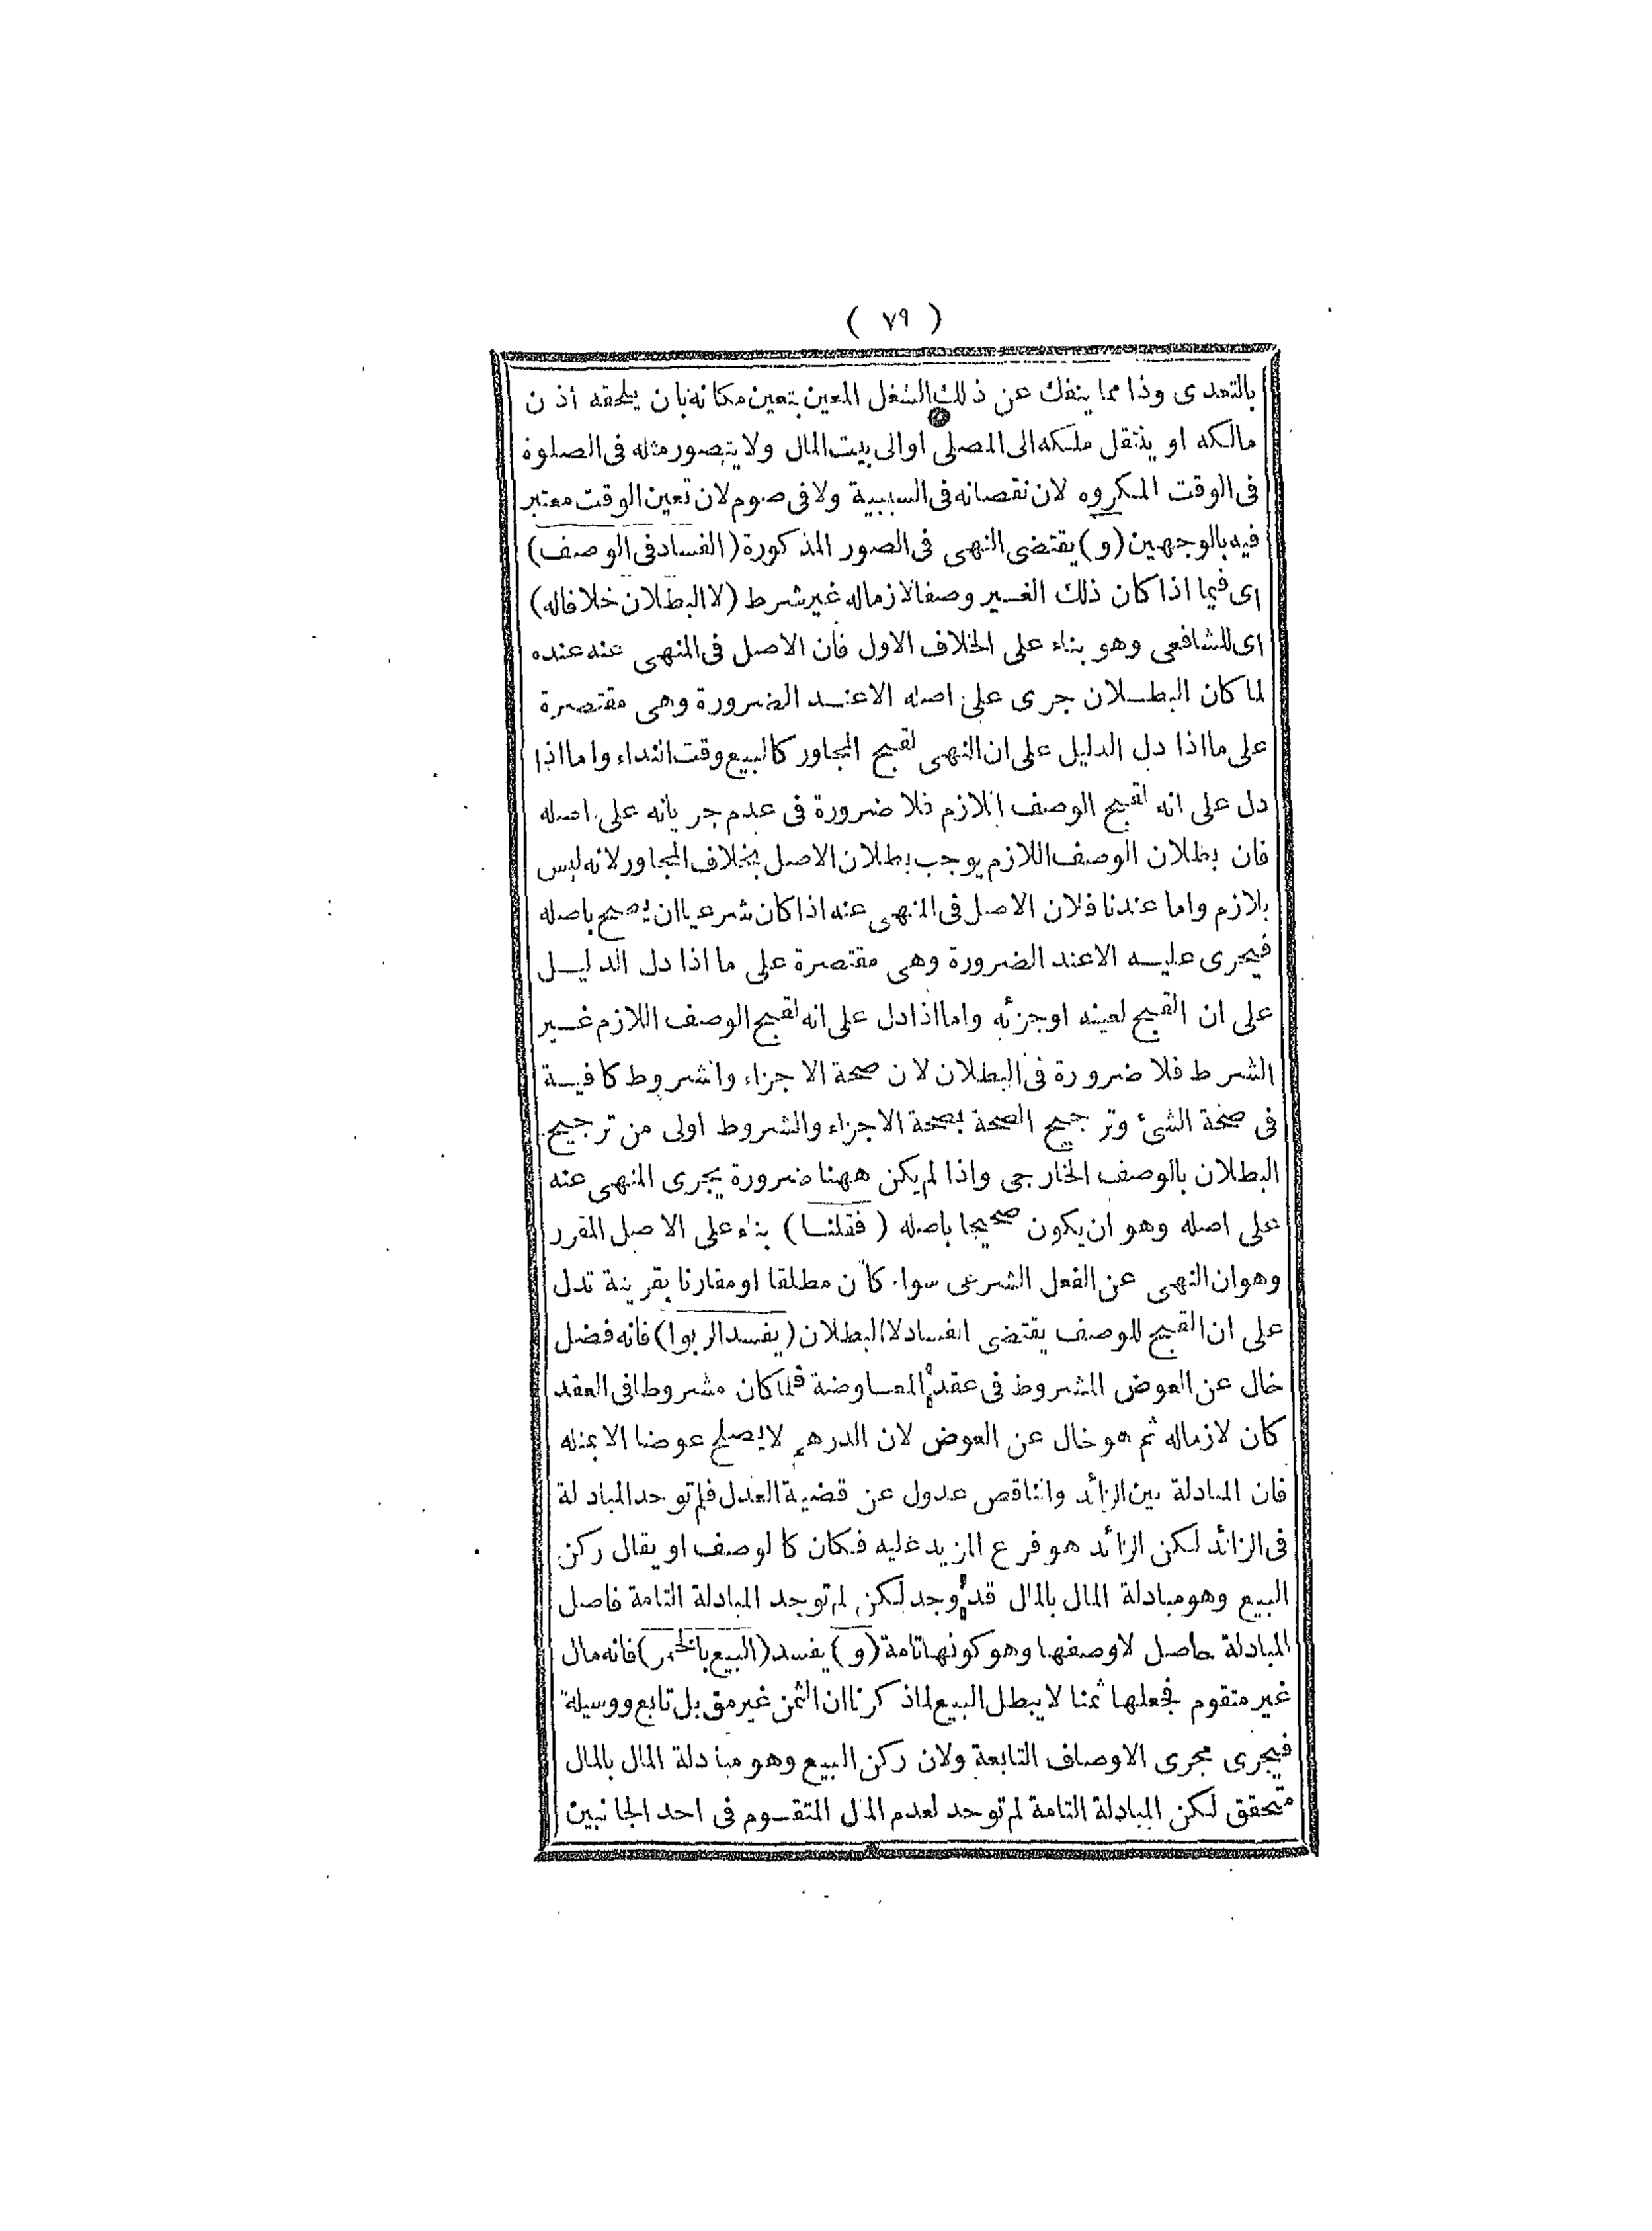 ( ٧٩ )
بالتعدى وذا مما ينفك عن ذلك الشغل المعين بتعين مكانه بان يلحقه أذن
مالكه او ينتقل ملكه الى المصلى اوالى بيت المال ولا يتصور مثله فى الصلوة
فى الوقت المكروه لان نقصانه فى السببية ولا فى صوم لان تعين الوقت معتبر
فيه بالوجهين (و) يقتضى النهى فى الصور المذكورة (الفساد فى الوصف)
اى فيما اذا كان ذلك الغير وصفا لازما له غير شرط (لا البطلان خلافا له)
اى للشافعى وهو بناء على الخلاف الاول فأن الاصل فى المنهى عنه عنده
لما كان البطلان جرى على اصله الا عند الضرورة وهى مقتصرة
على ما اذا دل الدليل على ان النهى لقبح المجاور كالبيع وقت النداء واما اذا
دل على انه لقبح الوصف اللازم فلا ضرورة فى عدم جريانه على اصله
فان بطلان الوصف اللازم يوجب بطلان الاصل بخلاف المجاور لانه ليس
بلازم واما عندنا فلان الاصل فى المنهى عنه اذا كان شرعيا ان يصح باصله
فيجرى عليه الا عند الضرورة وهى مقتصرة على ما اذا دل الدليل
على ان القبح لعينه او جزئه واما اذا دل على انه لقبح الوصف اللازم غير
الشرط فلا ضرورة فى البطلان لان صحة الاجزاء والشروط كافية
فى صحة الشئ وترجيح الصحة بصحة الاجزاء والشروط اولى من ترجيح
البطلان بالوصف الخارجى واذا لم يكن ههنا ضرورة يجرى المنهى عنه
على اصله وهو ان يكون صحيحا باصله (فقلنا) بناء على الاصل المقرر
وهو ان النهى عن الفعل الشرعى سواء كان مطلقا او مقارنا بقرينة تدل
على ان القبح للوصف يقتضى الفساد لا البطلان (يفسد الربوا) فانه فضل
خال عن العوض المشروط فى عقد المعاوضة فلما كان مشروطا فى العقد
كان لازما له ثم هو خال عن العوض لان الدرهم لا يصلح عوضا الا بمثله
فان المبادلة بين الزائد والناقص عدول عن قضية العدل فلم توجد المبادلة
فى الزائد لكن الزائد هو فرع المزيد عليه فكان كالوصف او يقال ركن
البيع وهو مبادلة المال بالمال قد وجد لكن لم توجد المبادلة التامة فاصل
المبادلة حاصل لا وصفها وهو كونها تامة (و) يفسد (البيع بالخمر) فانه مال
غير متقوم فجعلها ثمنا لا يبطل البيع لما ذكرنا ان الثمن غير مق بل تابع ووسيلة
فيجرى مجرى الاوصاف التابعة ولان ركن البيع وهو مبادلة المال بالمال
متحقق لكن المبادلة التامة لم توجد لعدم المال المتقوم فى احد الجانبين